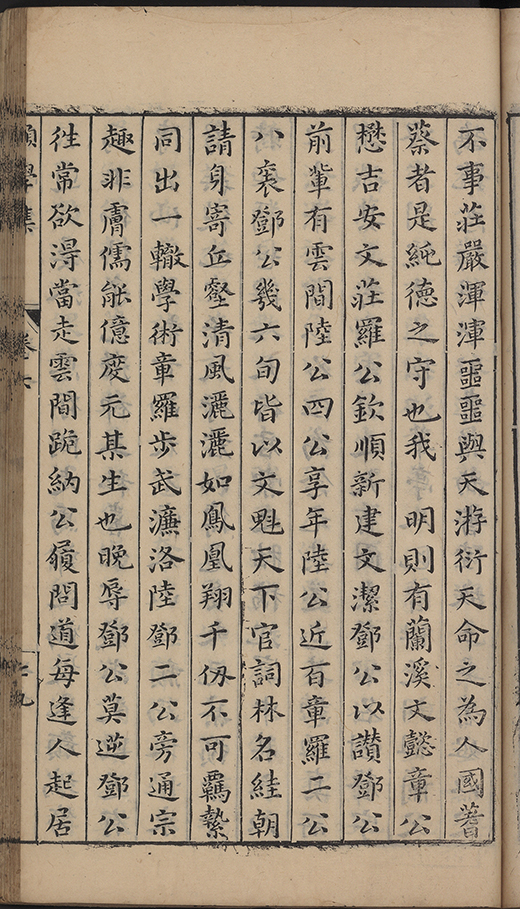 不事莊嚴渾渾噩噩與天游衍天命之為人國蓍
蔡者是純德之守也我　明則有蘭溪文懿章公
懋吉安文莊羅公欽順新建文潔鄧公以讃鄧公
前輩有雲間陸公四公享年陸公近百章羅二公
八袠鄧公幾六旬皆以文魁天下官詞林名絓朝
請身寄丘壑清風灑灑如鳳凰翔千仞不可羈縶
同出一轍學術章羅步武濂洛陸鄧二公旁通宗
趣非膚儒能億度元某生也晚辱鄧公莫逆鄧公
徃常欲淂當走雲間跪納公履問道每逢人起居
學集
卷六
十九